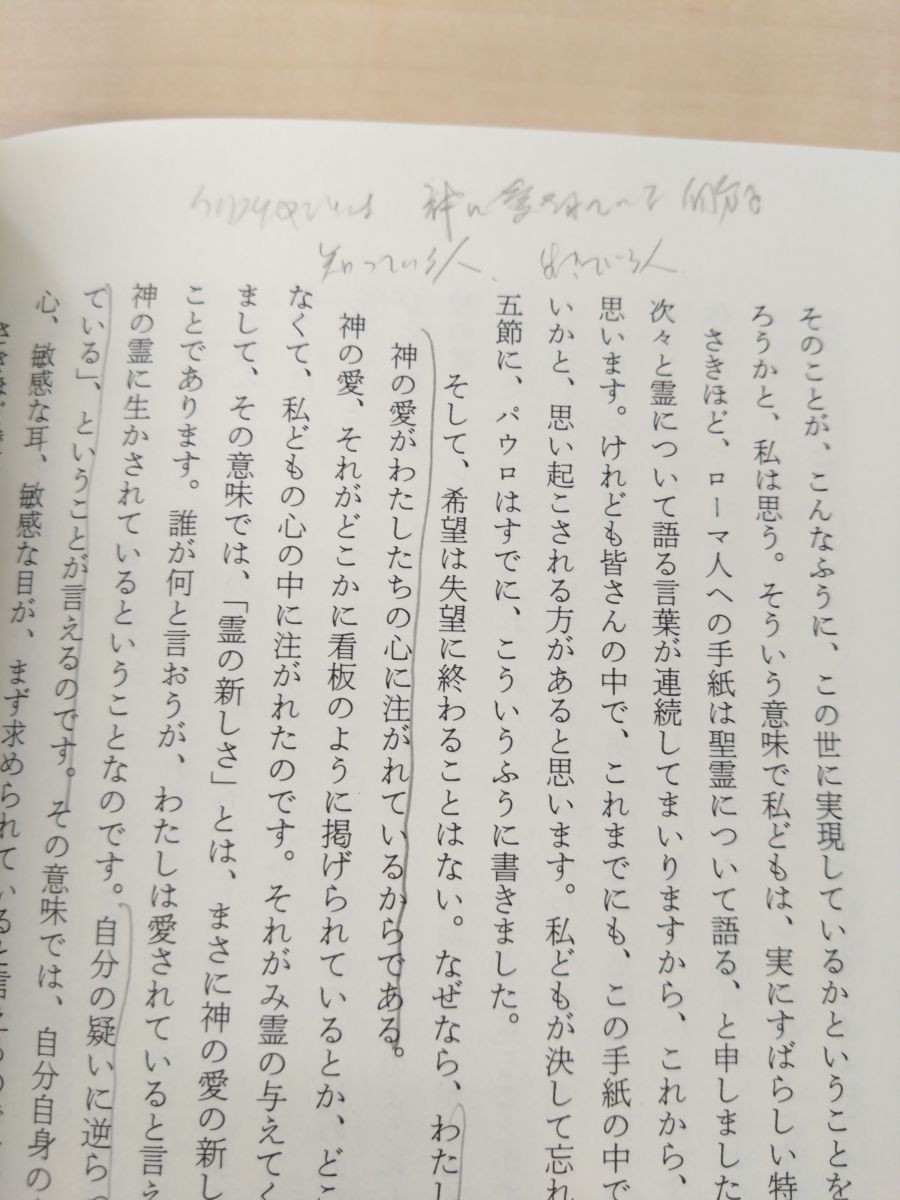 クリスチャンとは 神に愛されている自分を
知っている人、生きている人
そのことが、こんなふうに、この世に実現しているかということを
ろうかと、私は思う。そういう意味で私どもは、実にすばらしい特
さきほど、ローマ人への手紙は聖霊について語る、と申しました
次々と霊について語る言葉が連続してまいりますから、これから、
思います。けれども皆さんの中で、これまでにも、この手紙の中で
いかと、思い起こされる方があると思います。私どもが決して忘れ
五節に、パウロはすでに、こういうふうに書きました。
そして、希望は失望に終わることはない。なぜなら、わたし
神の愛がわたしたちの心に注がれているからである。
神の愛、それがどこかに看板のように掲げられているとか、どこ
なくて、私どもの心の中に注がれたのです。それがみ霊の与えてく
まして、その意味では、「霊の新しさ」とは、まさに神の愛の新し
ことであります。誰が何と言おうが、わたしは愛されていると言え
神の霊に生かされているということなのです。自分の疑いに逆らっ
ている」、ということが言えるのです。その意味では、自分自身の
心、敏感な耳、敏感な目が、まず求められていると言え